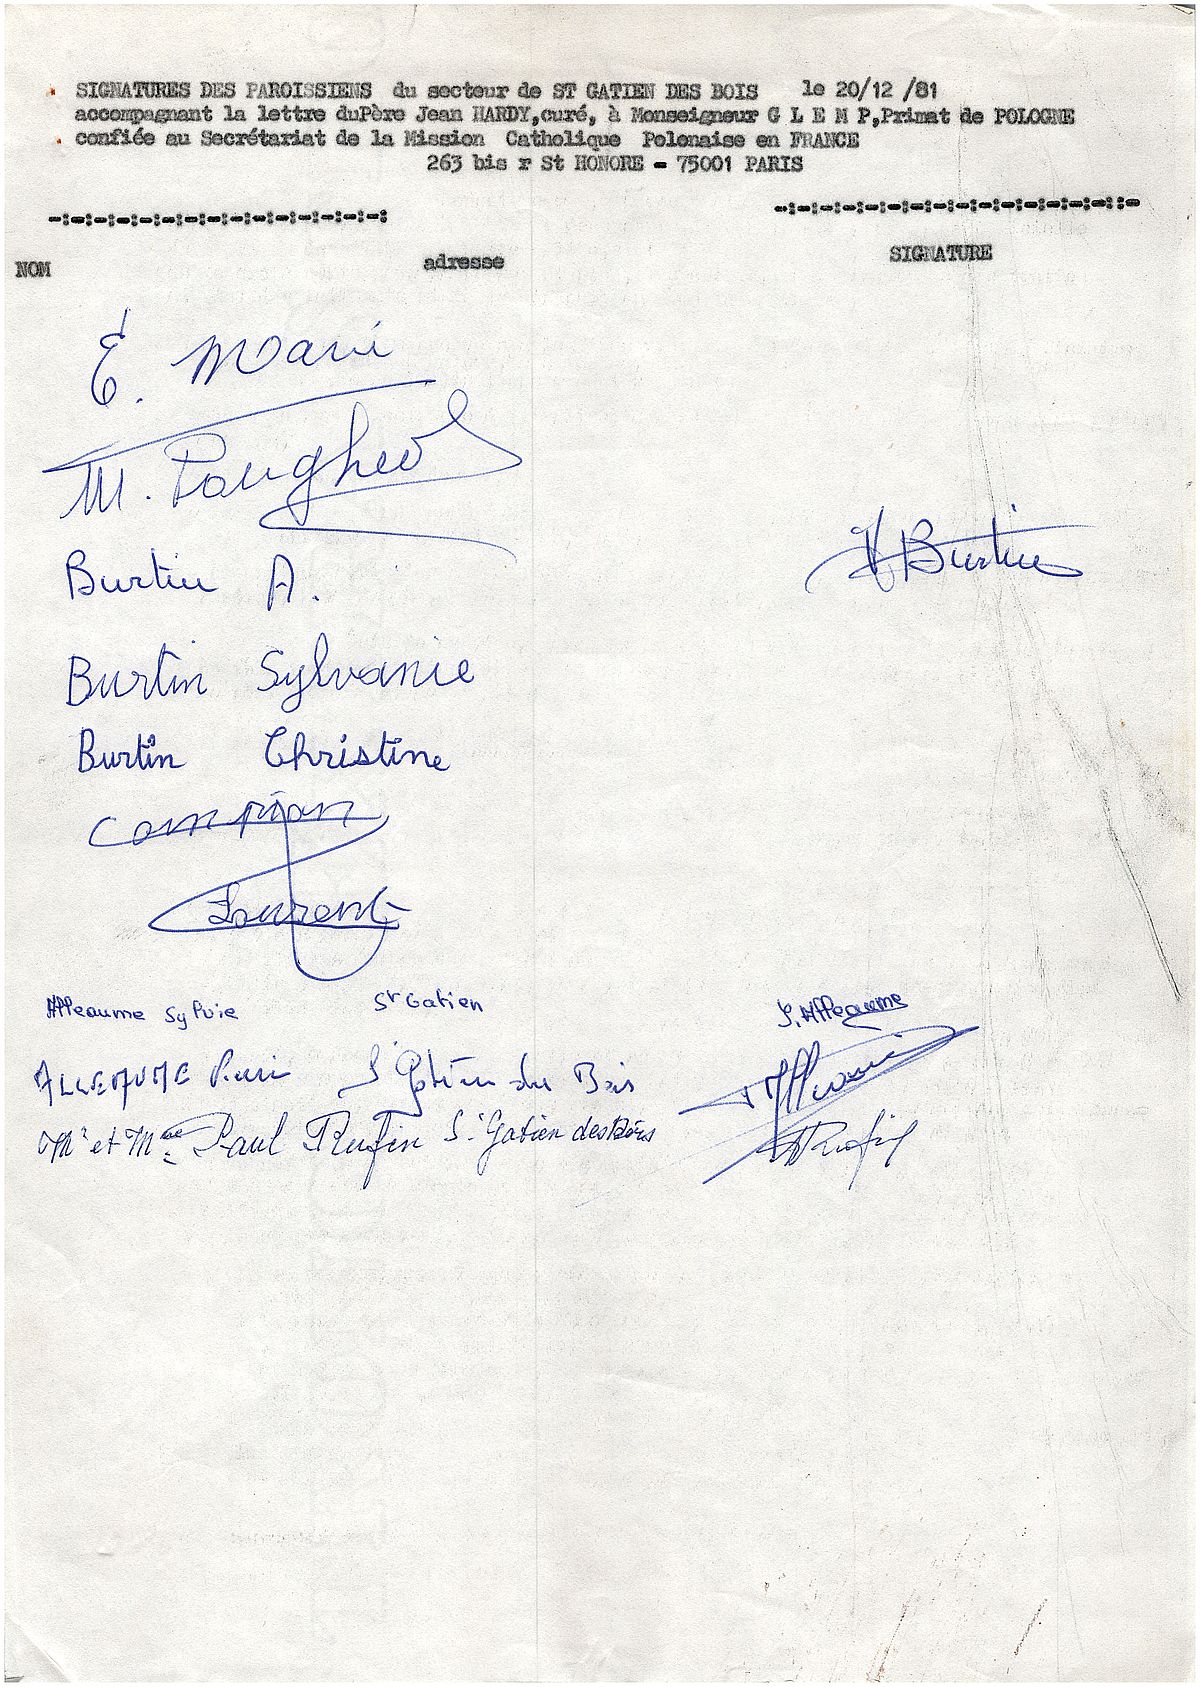 SIGNATURES DES PAROISSIENS du secteur de ST GATIEN DES BOIS le 20/12 /81
accompagnant la lettre duPère Jean HARDY,curé, à Monseigneur G L E M P,Primat de POLOGNE
confiée au Secrétariat de la Mission Catholique Polonaise en FRANCE
263 bis r St HONORE - 75001 PARIS
-:-:-:-:-:-:-:-:-:-:-:-:-:-:-: -:-:-:-:-:-:-:-:-:-:-:-:-:-:-::-
NOM adresse SIGNATURE
E. Mari
M.
Burtin A. Burtin
Burtin Sylvanie
Burtin Christine
Campion
Laurent
Alleaume Sylvie St Gatien S. Alleaume
ALLEAUME St Gatien du Bois
Mr et Mme Paul Rufin St Gatien des Bois Rufin